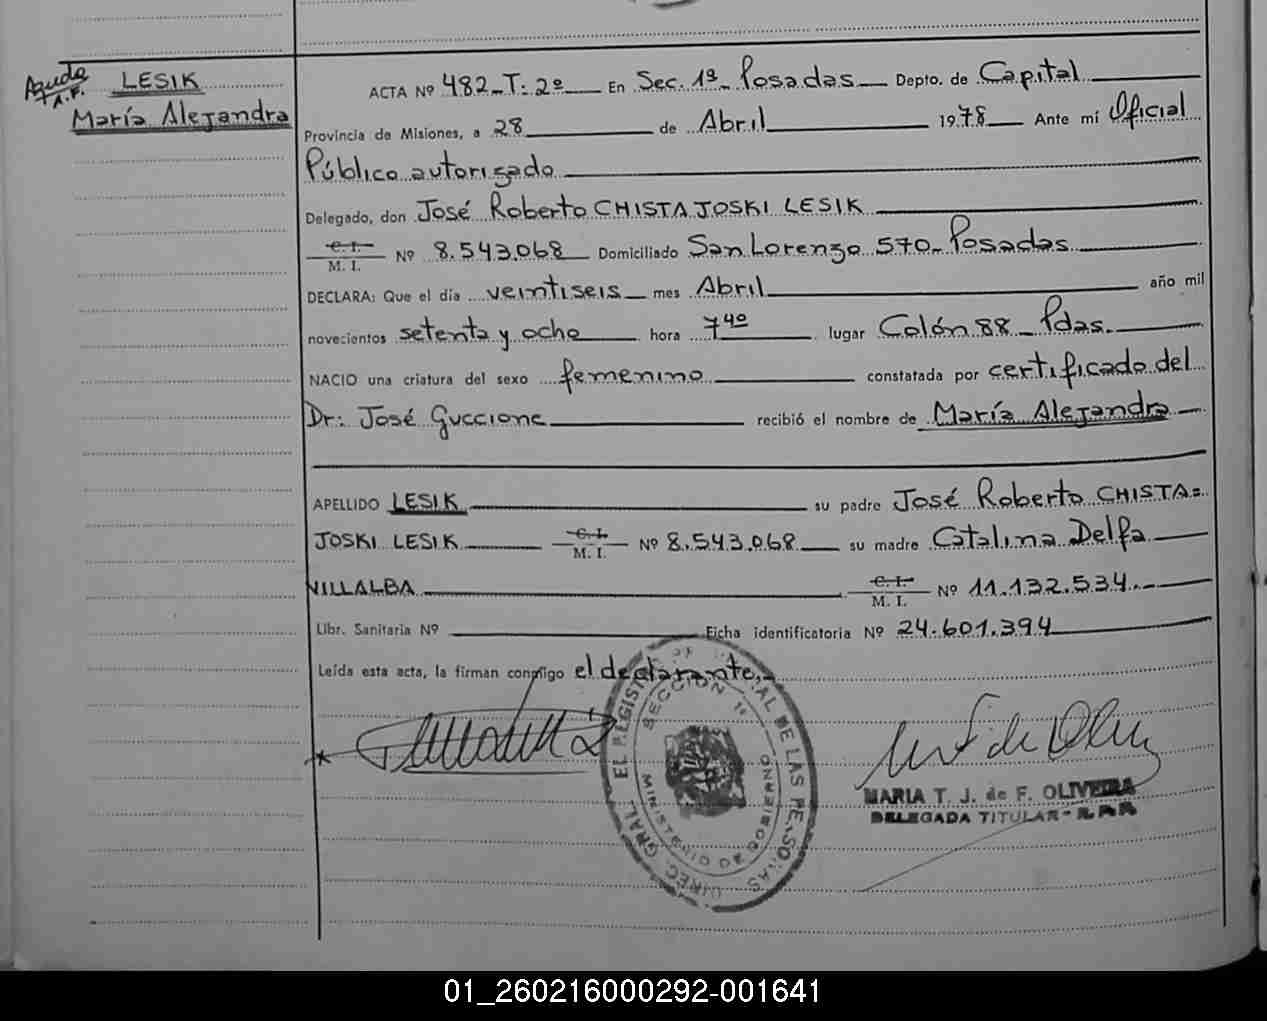 Ayuda
A.F.
LESIK
María Alejandra
ACTA Nº 482-T: 2º En Sec. 1ª Posadas Depto. de Capital
Provincia de Misiones, a 28 de Abril 1978 Ante mí Oficial
Público autorizado
Delegado, don José Roberto CHISTAJOSKI LESIK
C. I.
M. I. Nº 8.543.068 Domiciliado San Lorenzo 570- Posadas
DECLARA: Que el día veintiseis mes Abril año mil
novecientos setenta y ocho hora 7 40 lugar Colón 88 - Pdas.
NACIO una criatura del sexo femenino constatada por certificado del
Dr: José Guccione recibió el nombre de María Alejandra
APELLIDO LESIK su padre José Roberto CHISTA=
JOSKI LESIK C. I. M. I. Nº 8.543.068 su madre Catalina Delfa
VILLALBA C. I. M. I. Nº 11.132.534.-
Libr. Sanitaria Nº Ficha identificatoria Nº 24.601.394
Leída esta acta, la firman conmigo el declarante.-
SECCION 1ª
MINISTERIO DE GOBIERNO
MARIA T. J. de F. OLIVEIRA
DELEGADA TITULAR
01_260216000292-001641